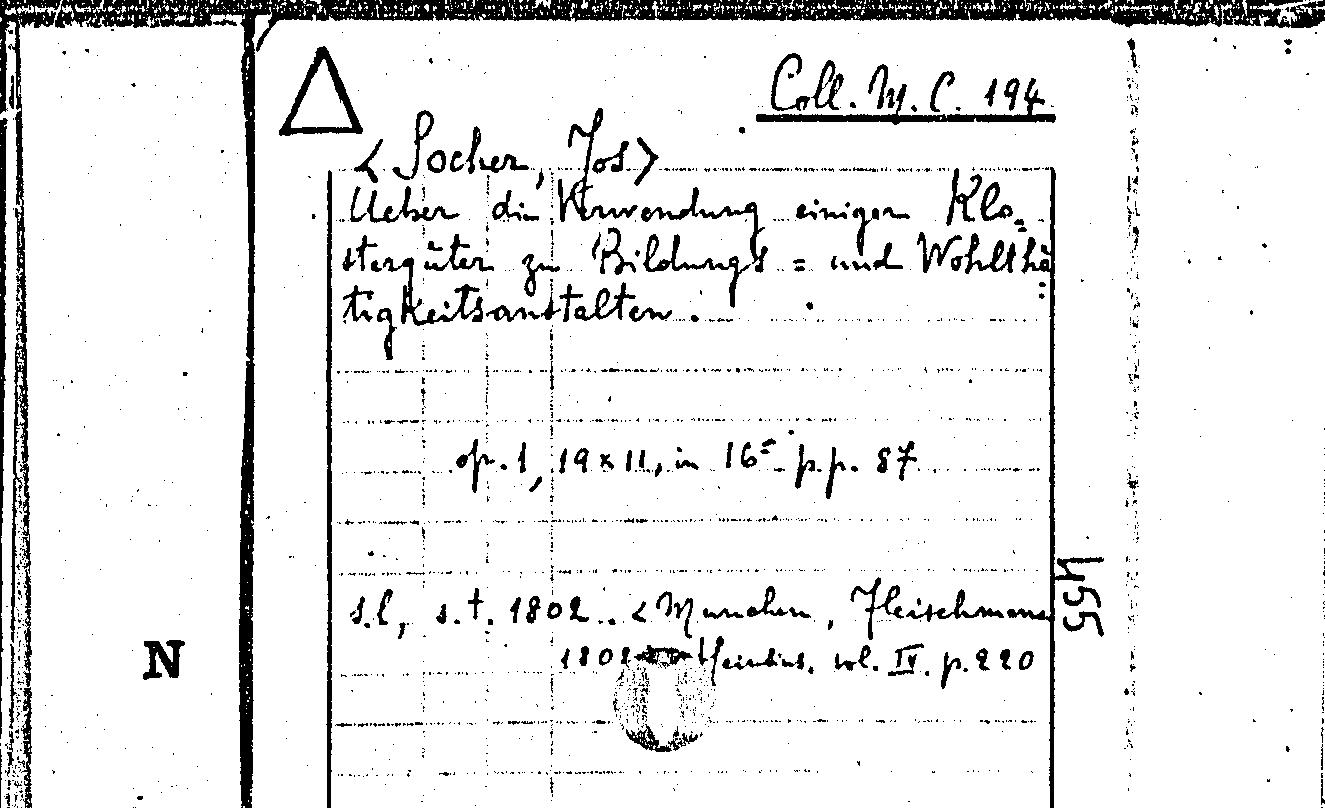 Coll. M. C. 194
< Socher, Jos>
Ueber die Verwendung einiger Klo=
stergüter zu Bildungs = und Wohlthä
tigkeitsanstalten.
op. 1, 19 x 11, in 16= p.p. 87
s.l, s.t. 1802.. < München, Fleischmann
1802 Heinsius. vol. IV. p. 220
455
N